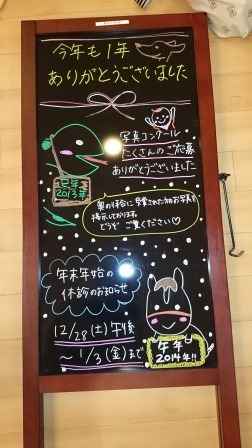 今年も1年
ありがとうございました
写真コンクール
たくさんのご応募
ありがとうございました
巳年
2013年
奥の待合に受賞されたお写真を
掲示しております。
どうぞ ご覧ください♡
年末年始の
休診のお知らせ
12/28(土)午後
～1/3(金)まで
午年
2014年!!